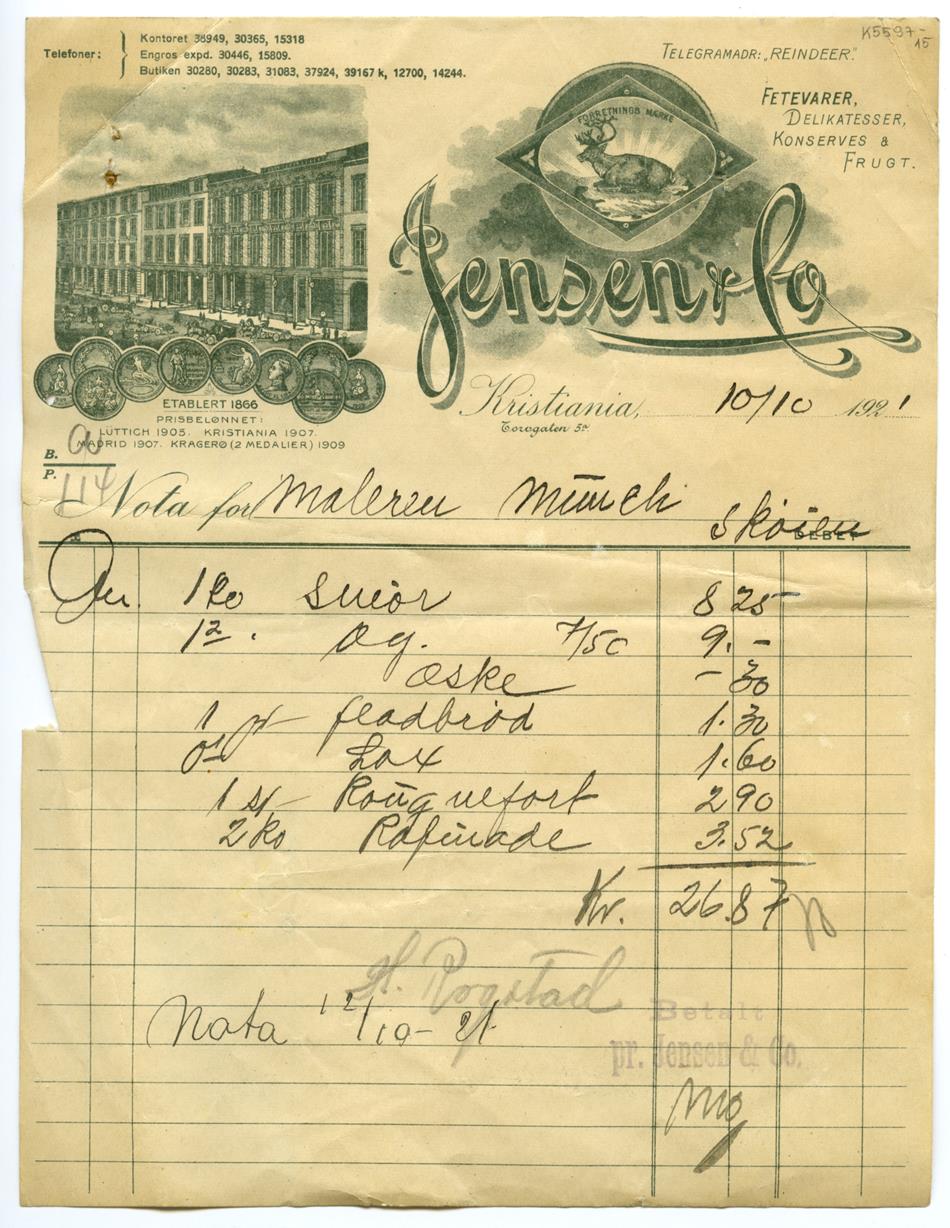 K5597-15
Telefoner:
Kontoret 38949, 30365, 15318
Engros expd. 30446, 15809.
Butiken 30280, 30283, 31083, 37924, 39167 k, 12700, 14244.
TELEGRAMADR: „REINDEER".
FETEVARER,
DELIKATESSER,
KONSERVES &
FRUGT.
FORRETNINGS MÆRKE
Jensen & Co
ETABLERT 1866
PRISBELØNNET:
LÜTTICH 1905. KRISTIANIA 1907.
MADRID 1907. KRAGERØ (2 MEDALIER) 1909
Kristiania, 10/10 1921
Torvgaten 5a
B.
P. 114
Nota for Maleren Münch
Skøien
DEBET
1 ko Smør 8 25
12 . Æg. 7/50 9.-
Æske - 30
1 pk fladbrød 1.30
Lax 1.60
1 st Rouquefort 2 90
2 ko Rafinade 3.52
Kr. 26.87
H. Rogstad
Nota 12/10-21
Betalt
pr. Jensen & Co.